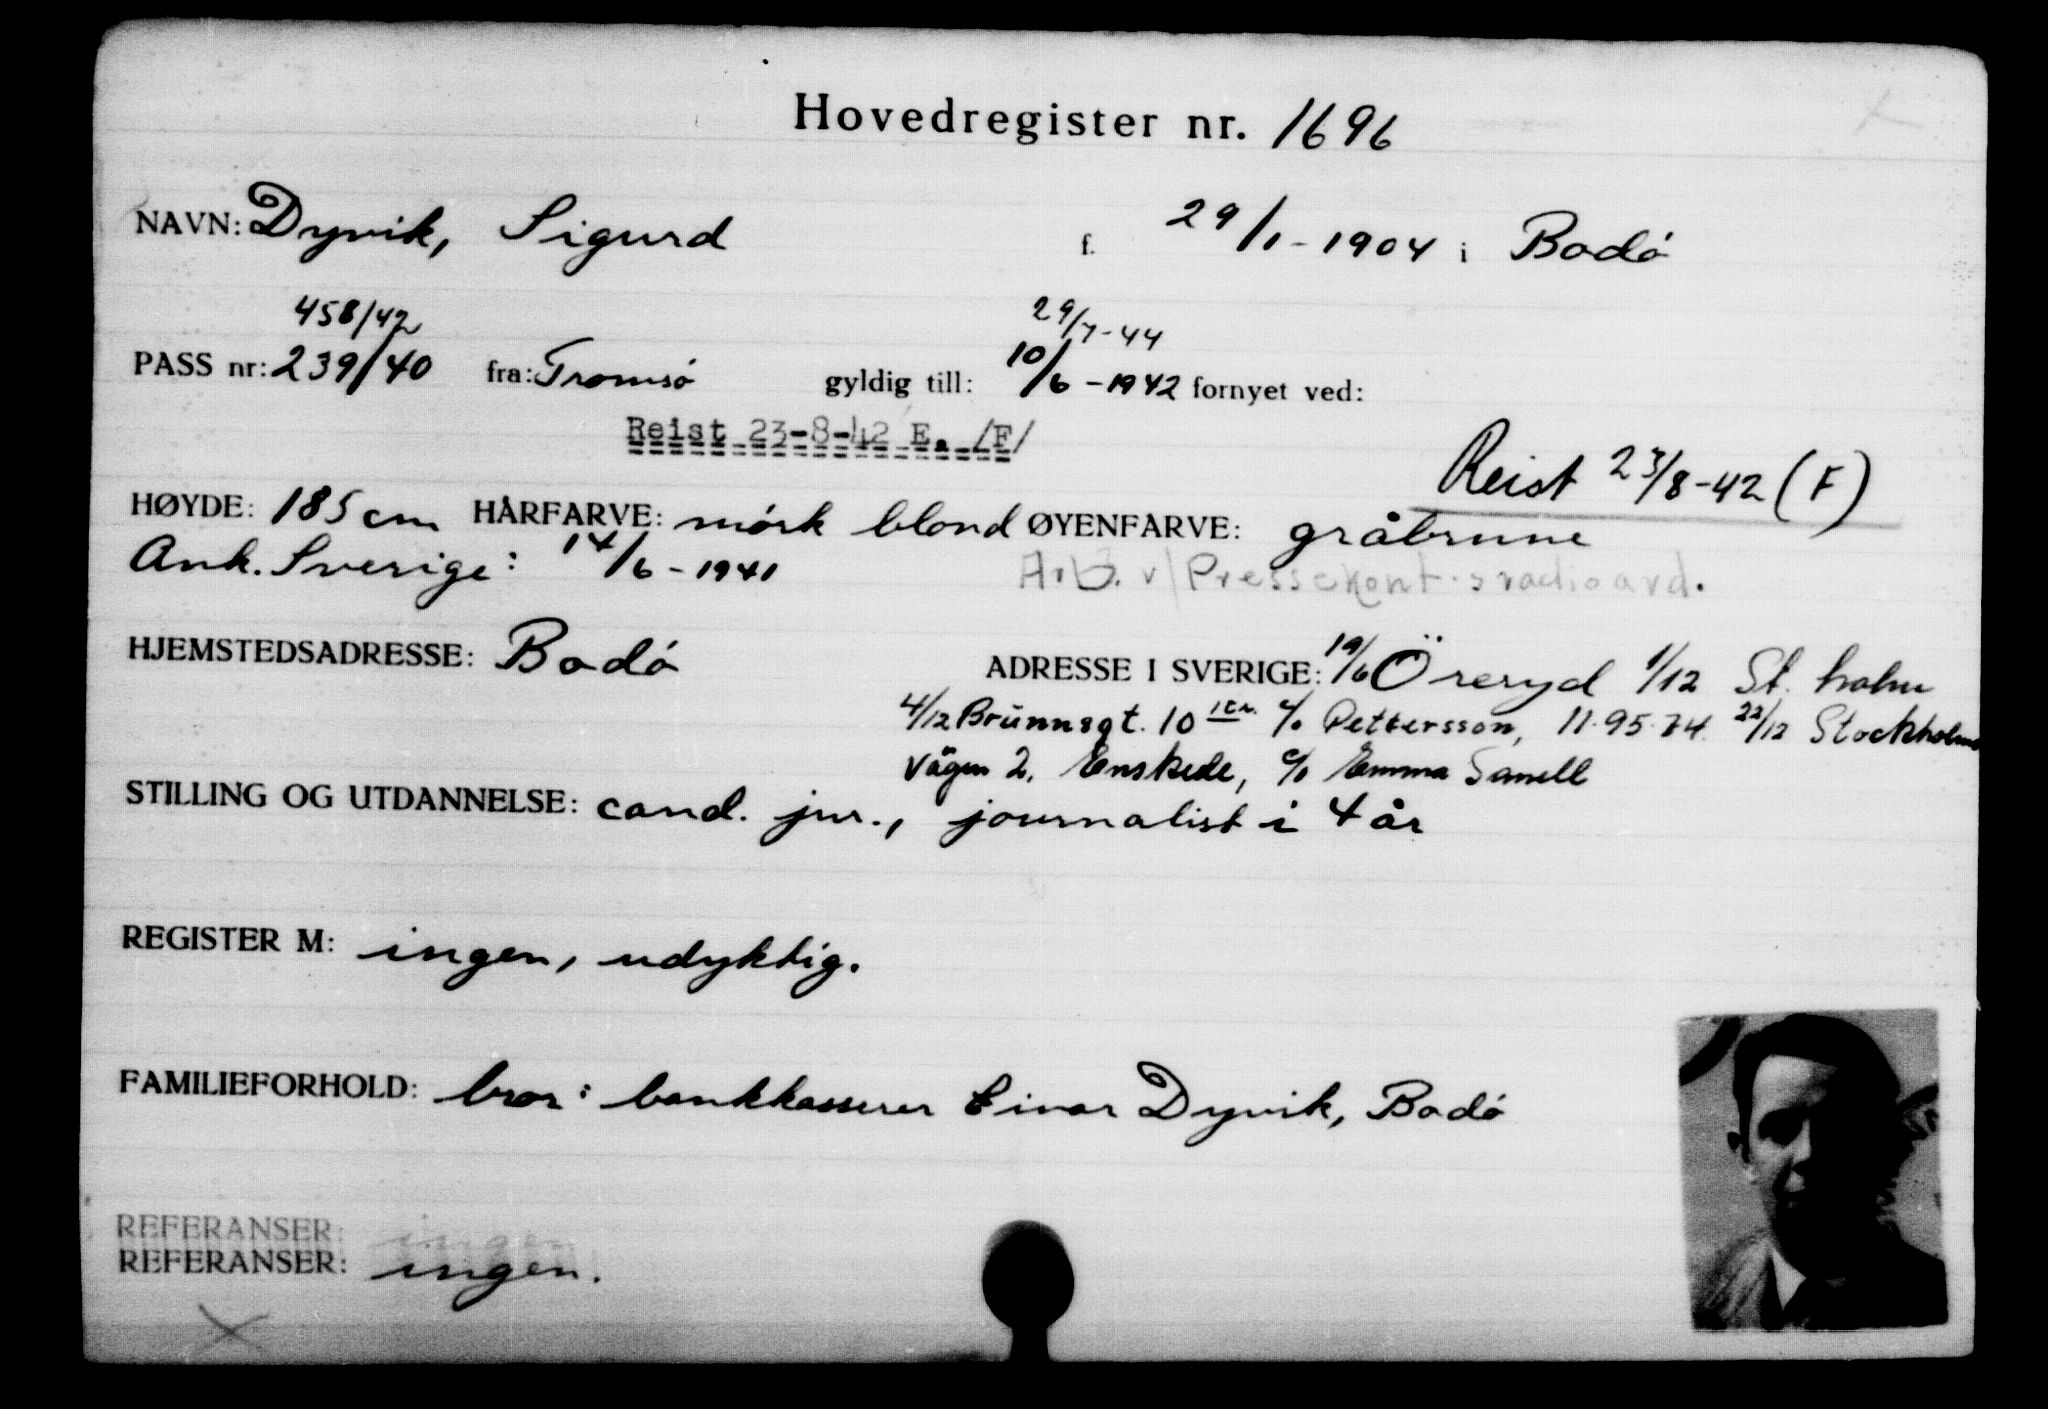 Hovedregister nr. 1696
NAVN: Dyvik, Sigurd f. 29/1-1904 i Bodó
458/42 29/7-44
PASS nr: 239/40 fra: Tromsó gyldig till: 10/6-1942 fornyet ved:
Reist 23-8-42 E. /F/
Reist 23/8-42 (F)
HØYDE: 185 cm HÅRFARVE: mórk blond ØYENFARVE: gråbrune
Ank. Sverige: 14/6-1941 Arb. v/Pressekont.s radioavd.
HJEMSTEDSADRESSE: Bodó ADRESSE I SVERIGE: 19/6 Öreryd 1/12 St.holm
4/12 Brunnsgt. 10 c/o Pettersson, 11.95.74. 22/12 Stockholms
vägen 2, Enskede, c/o Emma Sanell
STILLING OG UTDANNELSE: cand. jur., journalist i 4 år
REGISTER M: ingen, udyktig.
FAMILIEFORHOLD: bror: bankkasserer Einar Dyvik, Bodó
REFERANSER: ingen
REFERANSER: ingen.